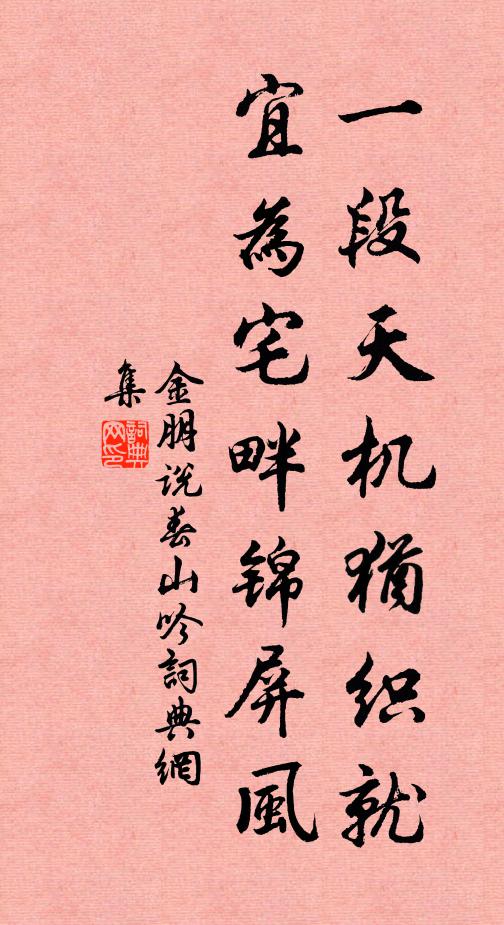 一段天机犹织就
宜為宅畔锦屏風
金朋说春山吟詞典網
集
詞典
网印